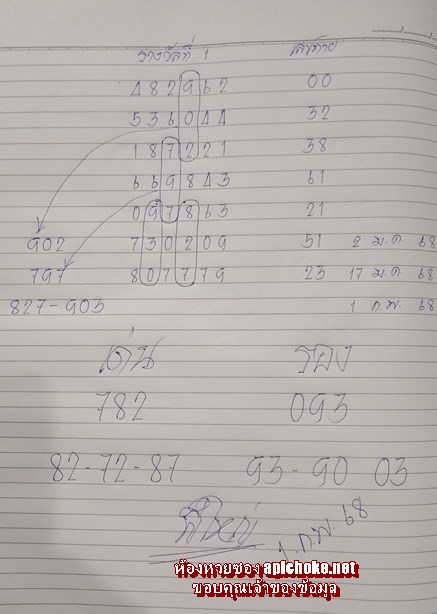 รางวัลที่ 1 เลขท้าย
482962 00
536044 32
187221 38
669843 61
097863 21
902 730209 51 2 ม.ค. 68
797 807779 23 17 ม.ค. 68
827-903 1 ก.พ. 68
เด่น รอง
782 093
82-72-87 93-90 03
1 ก.พ. 68
ห้องหวยซอง apichoke.net
ขอบคุณเจ้าของข้อมูล